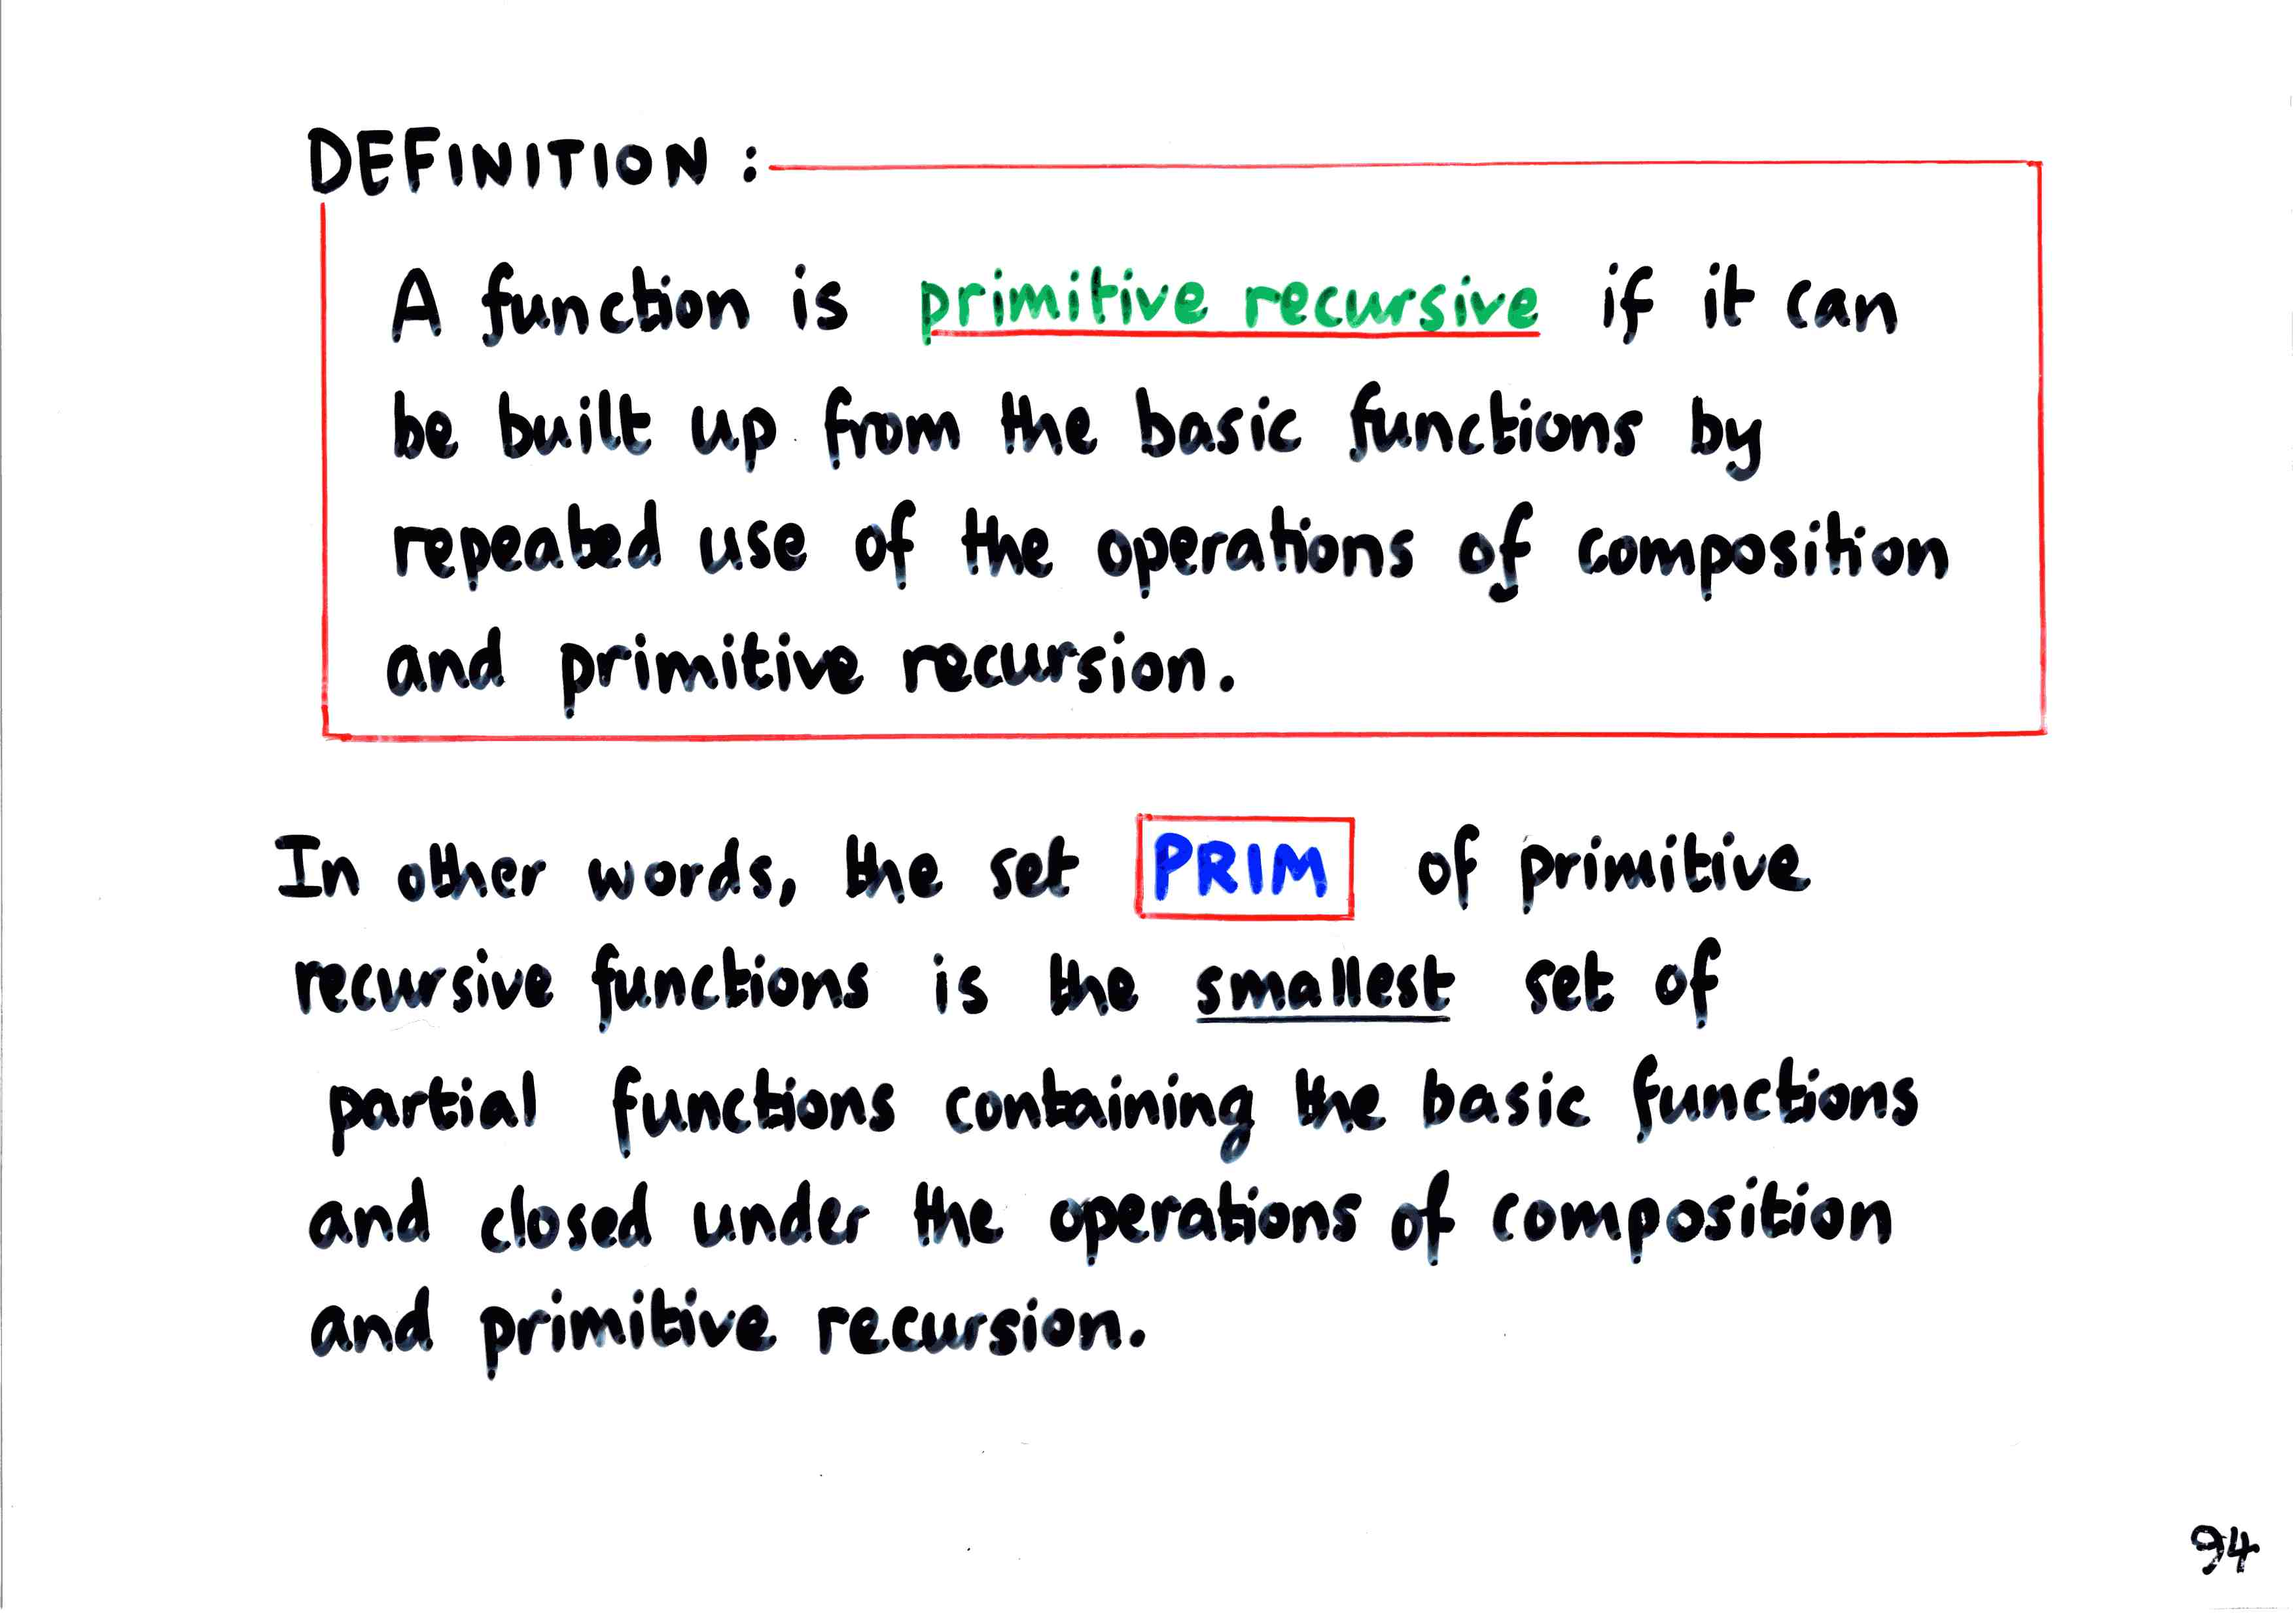 DEFINITION :
A function is primitive recursive if it can
be built up from the basic functions by
repeated use of the operations of composition
and primitive recursion.
In other words, the set PRIM of primitive
recursive functions is the smallest set of
partial functions containing the basic functions
and closed under the operations of composition
and primitive recursion.
94